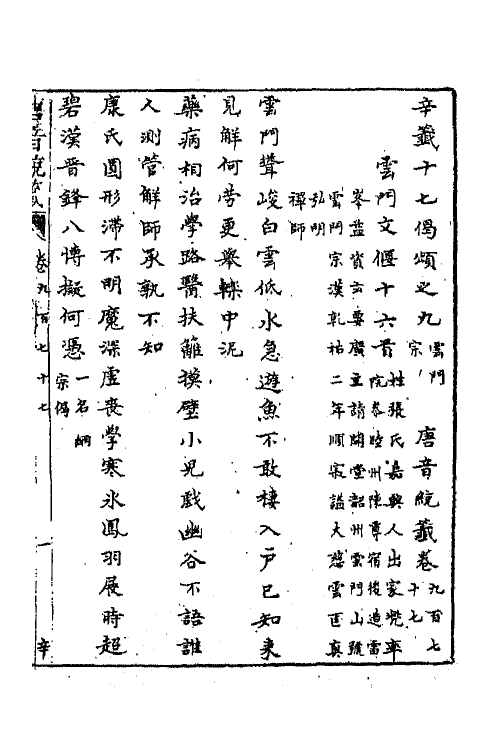 辛籤十七偈頌之九 雲門宗 唐音統籤卷九百七十七
雲門文偃十六首
姓張氏嘉興人出家兜率
院參睦州陳尊宿後造雪
峯益資玄要廣主請開堂韶州雲門山號
雲門宗漢乾祐二年順寂諡大慈雲匡真
弘明
禪師
雲門聳峻白雲低水急遊魚不敢棲入戶已知來
見解何勞更舉轢中泥
藥病相治學路醫扶籬摸壁小兒戲幽谷不語誰
人測管解師承孰不知
康氏圓形滯不明魔深虛喪擊寒冰鳳羽展時超
碧漢晉鋒八博擬何憑 一名綱宗偈
卷九百七十七
一
辛